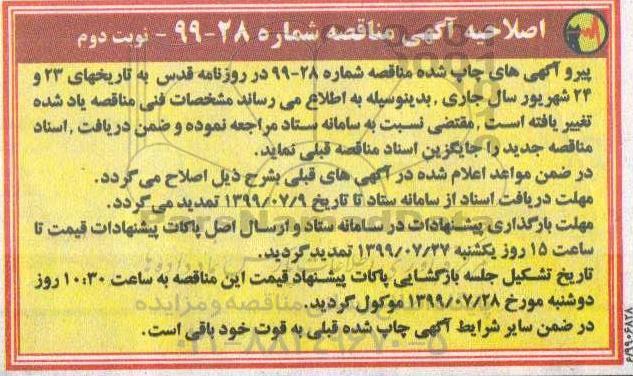 اصلاحیه آگهی مناقصه شماره ۲۸-۹۹ - نوبت دوم
پیرو آگهی های چاپ شده مناقصه شماره ۲۸-۹۹ در روزنامه قدس به تاریخهای ۲۳ و
۲۴ شهریور سال جاری ، بدینوسیله به اطلاع می رساند مشخصات فنی مناقصه یاد شده
تغییر یافته است ، مقتضی نسبت به سامانه ستاد مراجعه نموده و ضمن دریافت ، اسناد
مناقصه جدید را جایگزین اسناد مناقصه قبلی نماید.
در ضمن مواعد اعلام شده در آگهی های قبلی بشرح ذیل اصلاح می گردد.
مهلت دریافت اسناد از سامانه ستاد تا تاریخ ۱۳۹۹/۰۷/۹ تمدید می گردد.
مهلت بارگذاری پیشنهادات در سامانه ستاد و ارسال اصل پاکات پیشنهادات قیمت تا
ساعت ۱۵ روز یکشنبه ۱۳۹۹/۰۷/۲۷ تمدید گردید.
تاریخ تشکیل جلسه بازگشایی پاکات پیشنهاد قیمت این مناقصه به ساعت ۱۰:۳۰ روز
دوشنبه مورخ ۱۳۹۹/۰۷/۲۸ موکول گردید.
در ضمن سایر شرایط آگهی چاپ شده قبلی به قوت خود باقی است.
۶/۹۹۰۶۸۲۸
ParsNamadData
۰۲۱-۸۸۳۴۹۶۷۰-۵